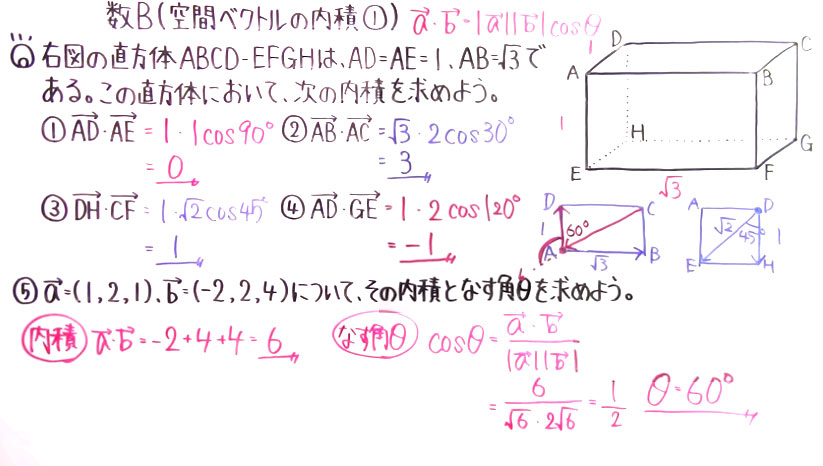 数B(空間ベクトルの内積①) a⃗・b⃗=|a⃗||b⃗|cosθ
右図の直方体ABCD-EFGHは、AD=AE=1、AB=√3で
ある。この直方体において、次の内積を求めよう。
①AD⃗・AE⃗ = 1・1cos90° ②AB⃗・AC⃗ = √3・2cos30°
= 0 = 3
③DH⃗・CF⃗ = 1・√2cos45° ④AD⃗・GE⃗ = 1・2cos120°
= 1 = -1
D C
1
A B
1
H G
E F
√3
D C
1 60°
A B
√3
A D
√2 45° 1
E H
⑤a⃗=(1,2,1)、b⃗=(-2,2,4)について、その内積となす角θを求めよう。
内積 a⃗・b⃗=-2+4+4=6
なす角θ cosθ=a⃗・b⃗/|a⃗||b⃗|
=6/√6・2√6=1/2 θ=60°